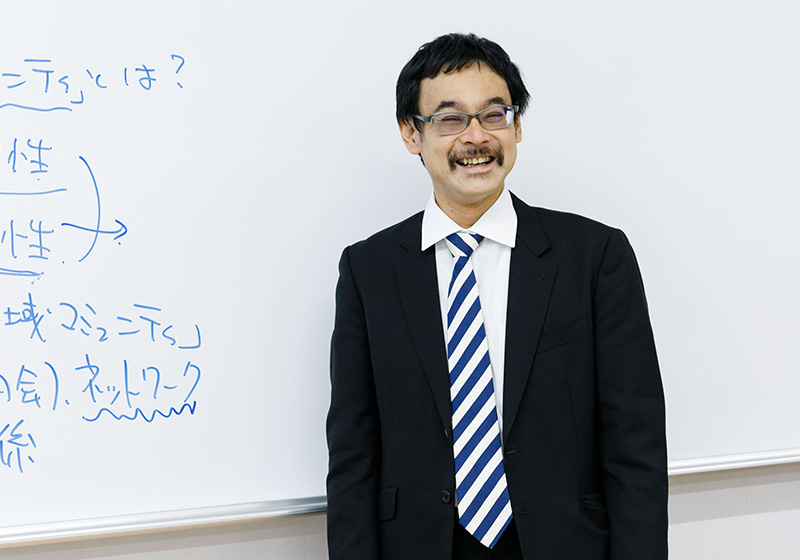 ニティ」とは?
性
性
域・コミュニティ」
会)、ネットワーク
係